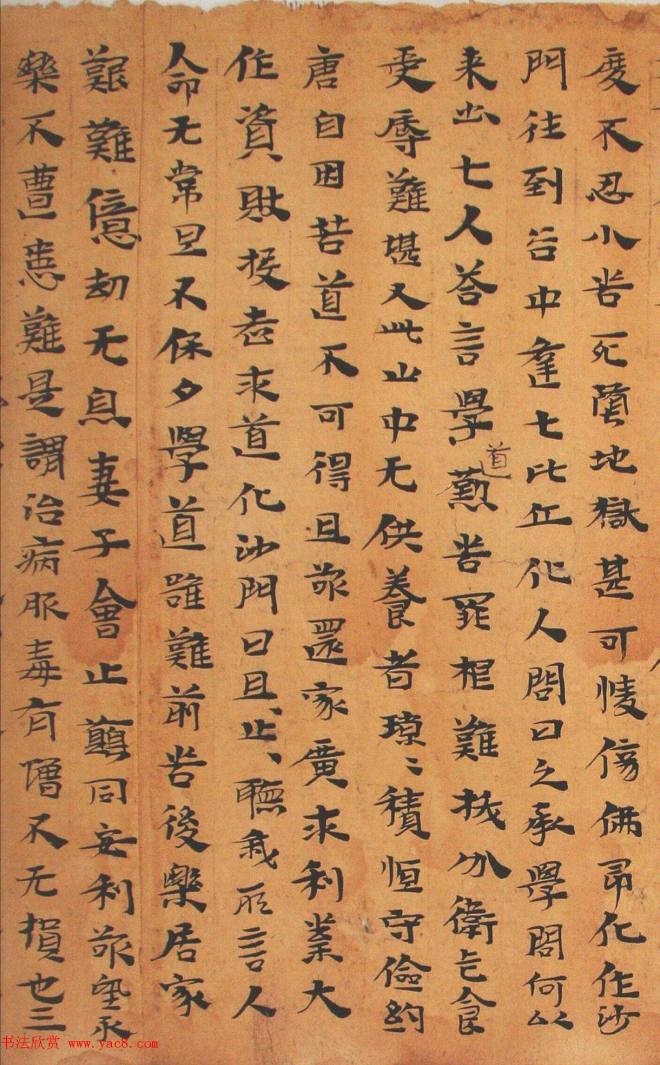 度不忍小苦死墮地獄甚可憐傷佛即化作沙
門往到谷中逢七比丘化人問曰久承學問何以
来出七人荅言學道懃苦罪根難拔分衛乞食
受辱難堪又此山中无供養者璅〻積恒守儉約
唐自困苦道不可得且欲還家廣求利業大
作資財投老求道化沙門曰且、止、聽我所言人
命无常旦不保夕學道雖難前苦後樂居家
艱難億劫无息妻子會止願同安利欲望永
樂不遭患難是謂治病服毒有增不无損也三
书法欣赏 www.yac8.com